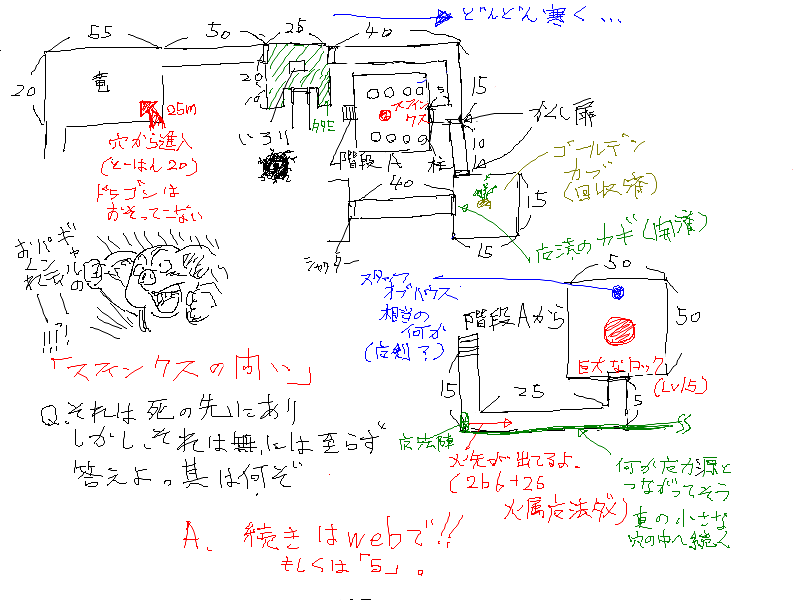 どんどん寒く…
55
50
25
40
20
竜
25m
穴から進入
(とーはん20)
ドラゴンは
おそってこない
20
10
いろり
階段A
スフィンクス
柱
5
15
10
かくし扉
ゴールデン
カブ
(回収済)
15
15
40
シャッター
魔法のカギ(開済)
ギャルの
パンティ
おくれ
!!!?!
スタッフ
オブハウス
相当の
何か
(魔剣?)
階段Aから
50
50
巨大なロック
(Lv15)
15
25
5
魔法陣
火矢が出てるよ。
(2b6+26
火属魔法ダメ)
何か魔力源と
つながってそう
真の小さな
穴の中へ続く
「スフィンクスの問い」
Q.それは死の先にあり
しかし、それは無には至らず
答えよ。其は何ぞ
A. 続きはwebで!!
もしくは「5」。